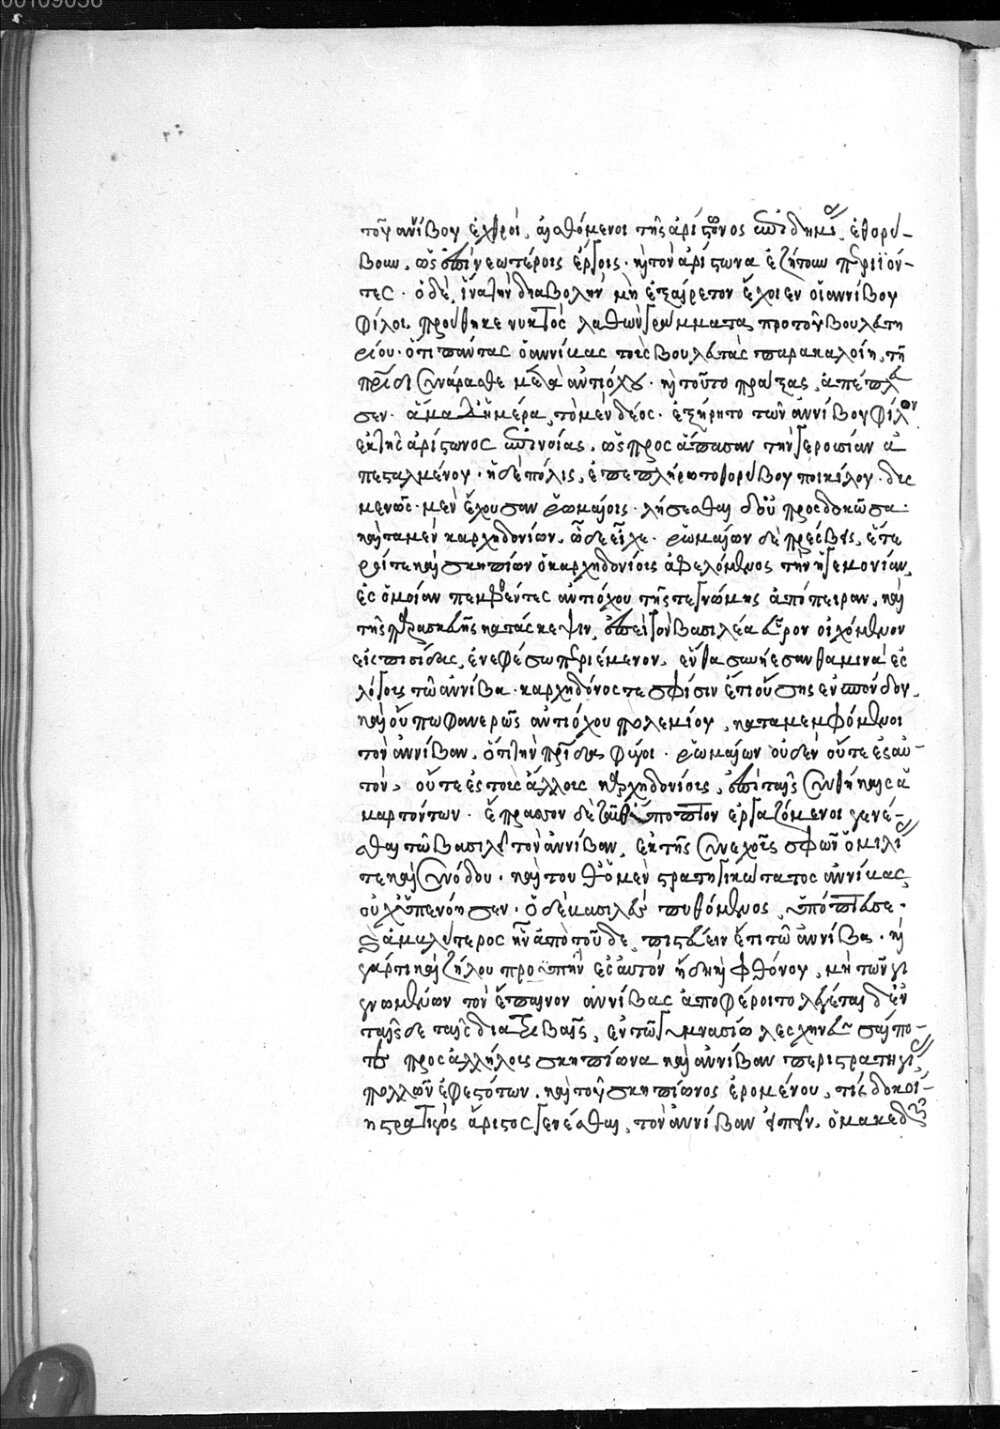 τοῦ ἀννίβου ἐχθροί, αἰσθόμενοι τῆς ἀρίστωνος ἐπιδημίας, ἐθορύ-
βουν, ὡς ἐπὶ νεωτέροις ἔργοις· καὶ τὸν ἀρίστωνα ἐζήτουν περιϊόν-
τες· ὁ δὲ, ἵνα τὴν διαβολὴν μὴ ἐξαίρετον ἔχοιεν οἱ ἀννίβου
φίλοι, προύθηκε νυκτὸς λαθὼν γράμματα πρὸ τοῦ βουλευτη
ρίου· ὅτι πάντας ὁ ἀννίβας τοὺς βουλευτὰς παρακαλοίη, τῇ
πατρίδι συνάρασθαι μετὰ ἀντιόχου· καὶ τοῦτο πράξας, ἀπέπλευ
σεν· ἅμα δ' ἡμέρα, τὸ μὲν δέος· ἐξῄρητο τῶν ἀννίβου φίλων
ἐκ τῆς ἀρίστωνος ἐπινοίας, ὡς πρὸς ἅπασαν τὴν γερουσίαν ἀ
πεσταλμένου· ἡ δὲ πόλις, ἐπεπλήρωτο θορύβου ποικίλου· δυς
μενῶς· μὲν ἔχουσαν ῥωμαίοις· λήσεσθαι δ' οὐ προσδοκῶσα·
καὶ τὰ μὲν καρχηδονίων, ὧδε εἶχε· ῥωμαίων δὲ πρέσβεις, ἕτε
ροί τε καὶ σκηπίων ὁ καρχηδονίοις ἀφελόμενος τὴν ἡγεμονίαν,
ἐς ὁμοίαν πεμφθέντες ἀντιόχου τῆς τε γνώμης ἀπόπειραν, καὶ
τῆς παρασκευῆς κατάσκεψιν, ἐπεὶ τὸν βασιλέα εὗρον οἰχόμενον
εἰς πισίδας, ἐν ἐφέσω περιέμενον· ἔνθα συνῄεσαν θαμινὰ ἐς
λόγους τῶ ἀννίβα· καρχηδόνος τε σφίσιν ἔτι οὔσης ἐνσπόνδου,
καὶ οὔπω φανερῶς ἀντιόχου πολεμίου, καταμεμφόμενοι
τὸν ἀννίβαν, ὅτι τὴν πατρίδα φύγοι· ῥωμαίων οὐδὲν οὔτε ἐς αὐ-
τὸν, οὔτε ἐς τοὺς ἄλλους καρχηδονίους, ἐπὶ ταῖς συνθήκαις ἁ
μαρτόντων· ἔπρασσον δὲ ταῦθ' ὕποπτον ἐργαζόμενοι γενέ-
σθαι τῶ βασιλεῖ τὸν ἀννίβαν, ἐκ τῆς συνεχοῦς σφῶν ὁμιλίας
τε καὶ συνόδου· καὶ τοῦθ' ὁ μὲν στρατηγικώτατος ἀννίβας,
οὐχ ὑπενόησεν· ὁ δὲ βασιλεὺς πυθόμενος, ὑπώπτευσε·
καὶ ἀμβλύτερος ἦν ἀπὸ τοῦδε, πιστεύειν ἔτι τῶ ἀννίβα· καὶ
γάρ τι καὶ ζήλου προϋπῆν ἐς αὐτὸν ἤδη καὶ φθόνου, μὴ τῶν γι
γνομένων τὸν ἔπαινον ἀννίβας ἀποφέροιτο λέγεται δ' ἐν
ταῖσδε ταῖς διατριβαῖς, ἐν τῶ γυμνασίω λεσχηνεῦσαί πο-
τε πρὸς ἀλλήλους σκηπίωνα καὶ ἀννίβαν περὶ στρατηγίας,
πολλῶν ἐφεστότων, καὶ τοῦ σκηπίωνος ἐρομένου, τίς δοκοί-
η στρατηγὸς ἄριστος γενέσθαι, τὸν ἀννίβαν εἰπεῖν, ὁ μακεδὼν